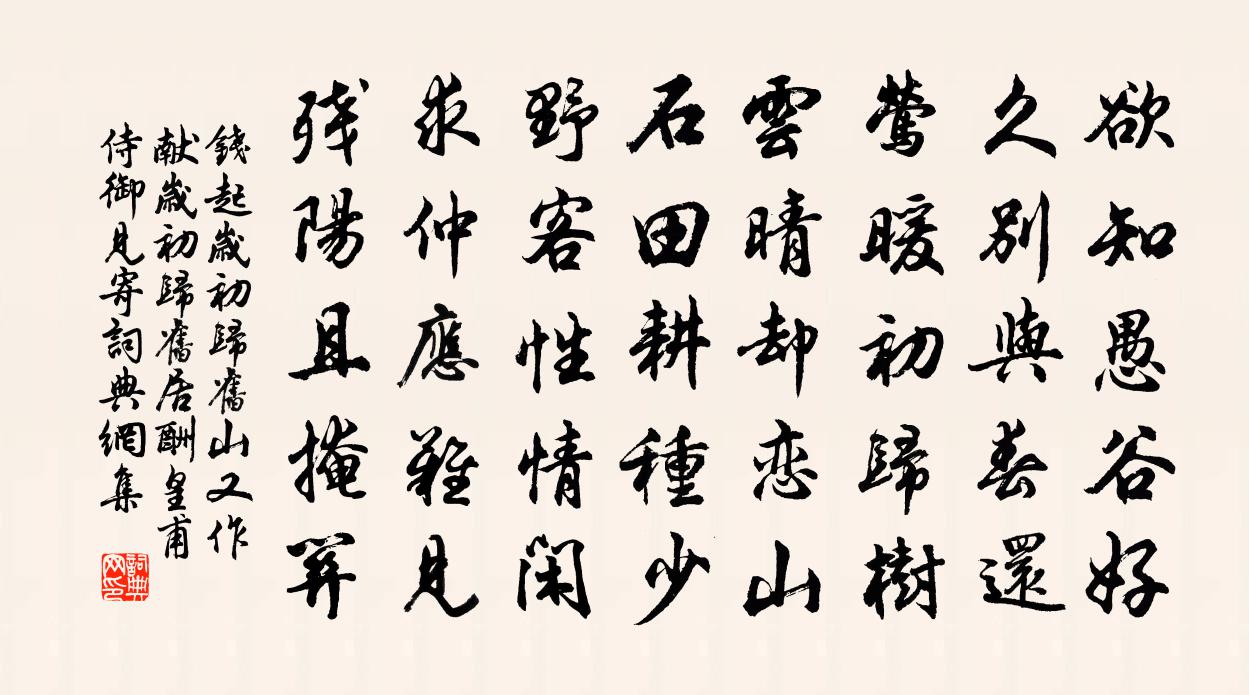 欲知愚谷好
久別與春還
鶯暖初歸樹
雲晴却恋山
石田耕種少
野客性情閑
求仲應難見
残陽且掩関
錢起歳初歸舊山又作
献歳初歸舊居酬皇甫
侍御見寄詞典網集
詞典
网印